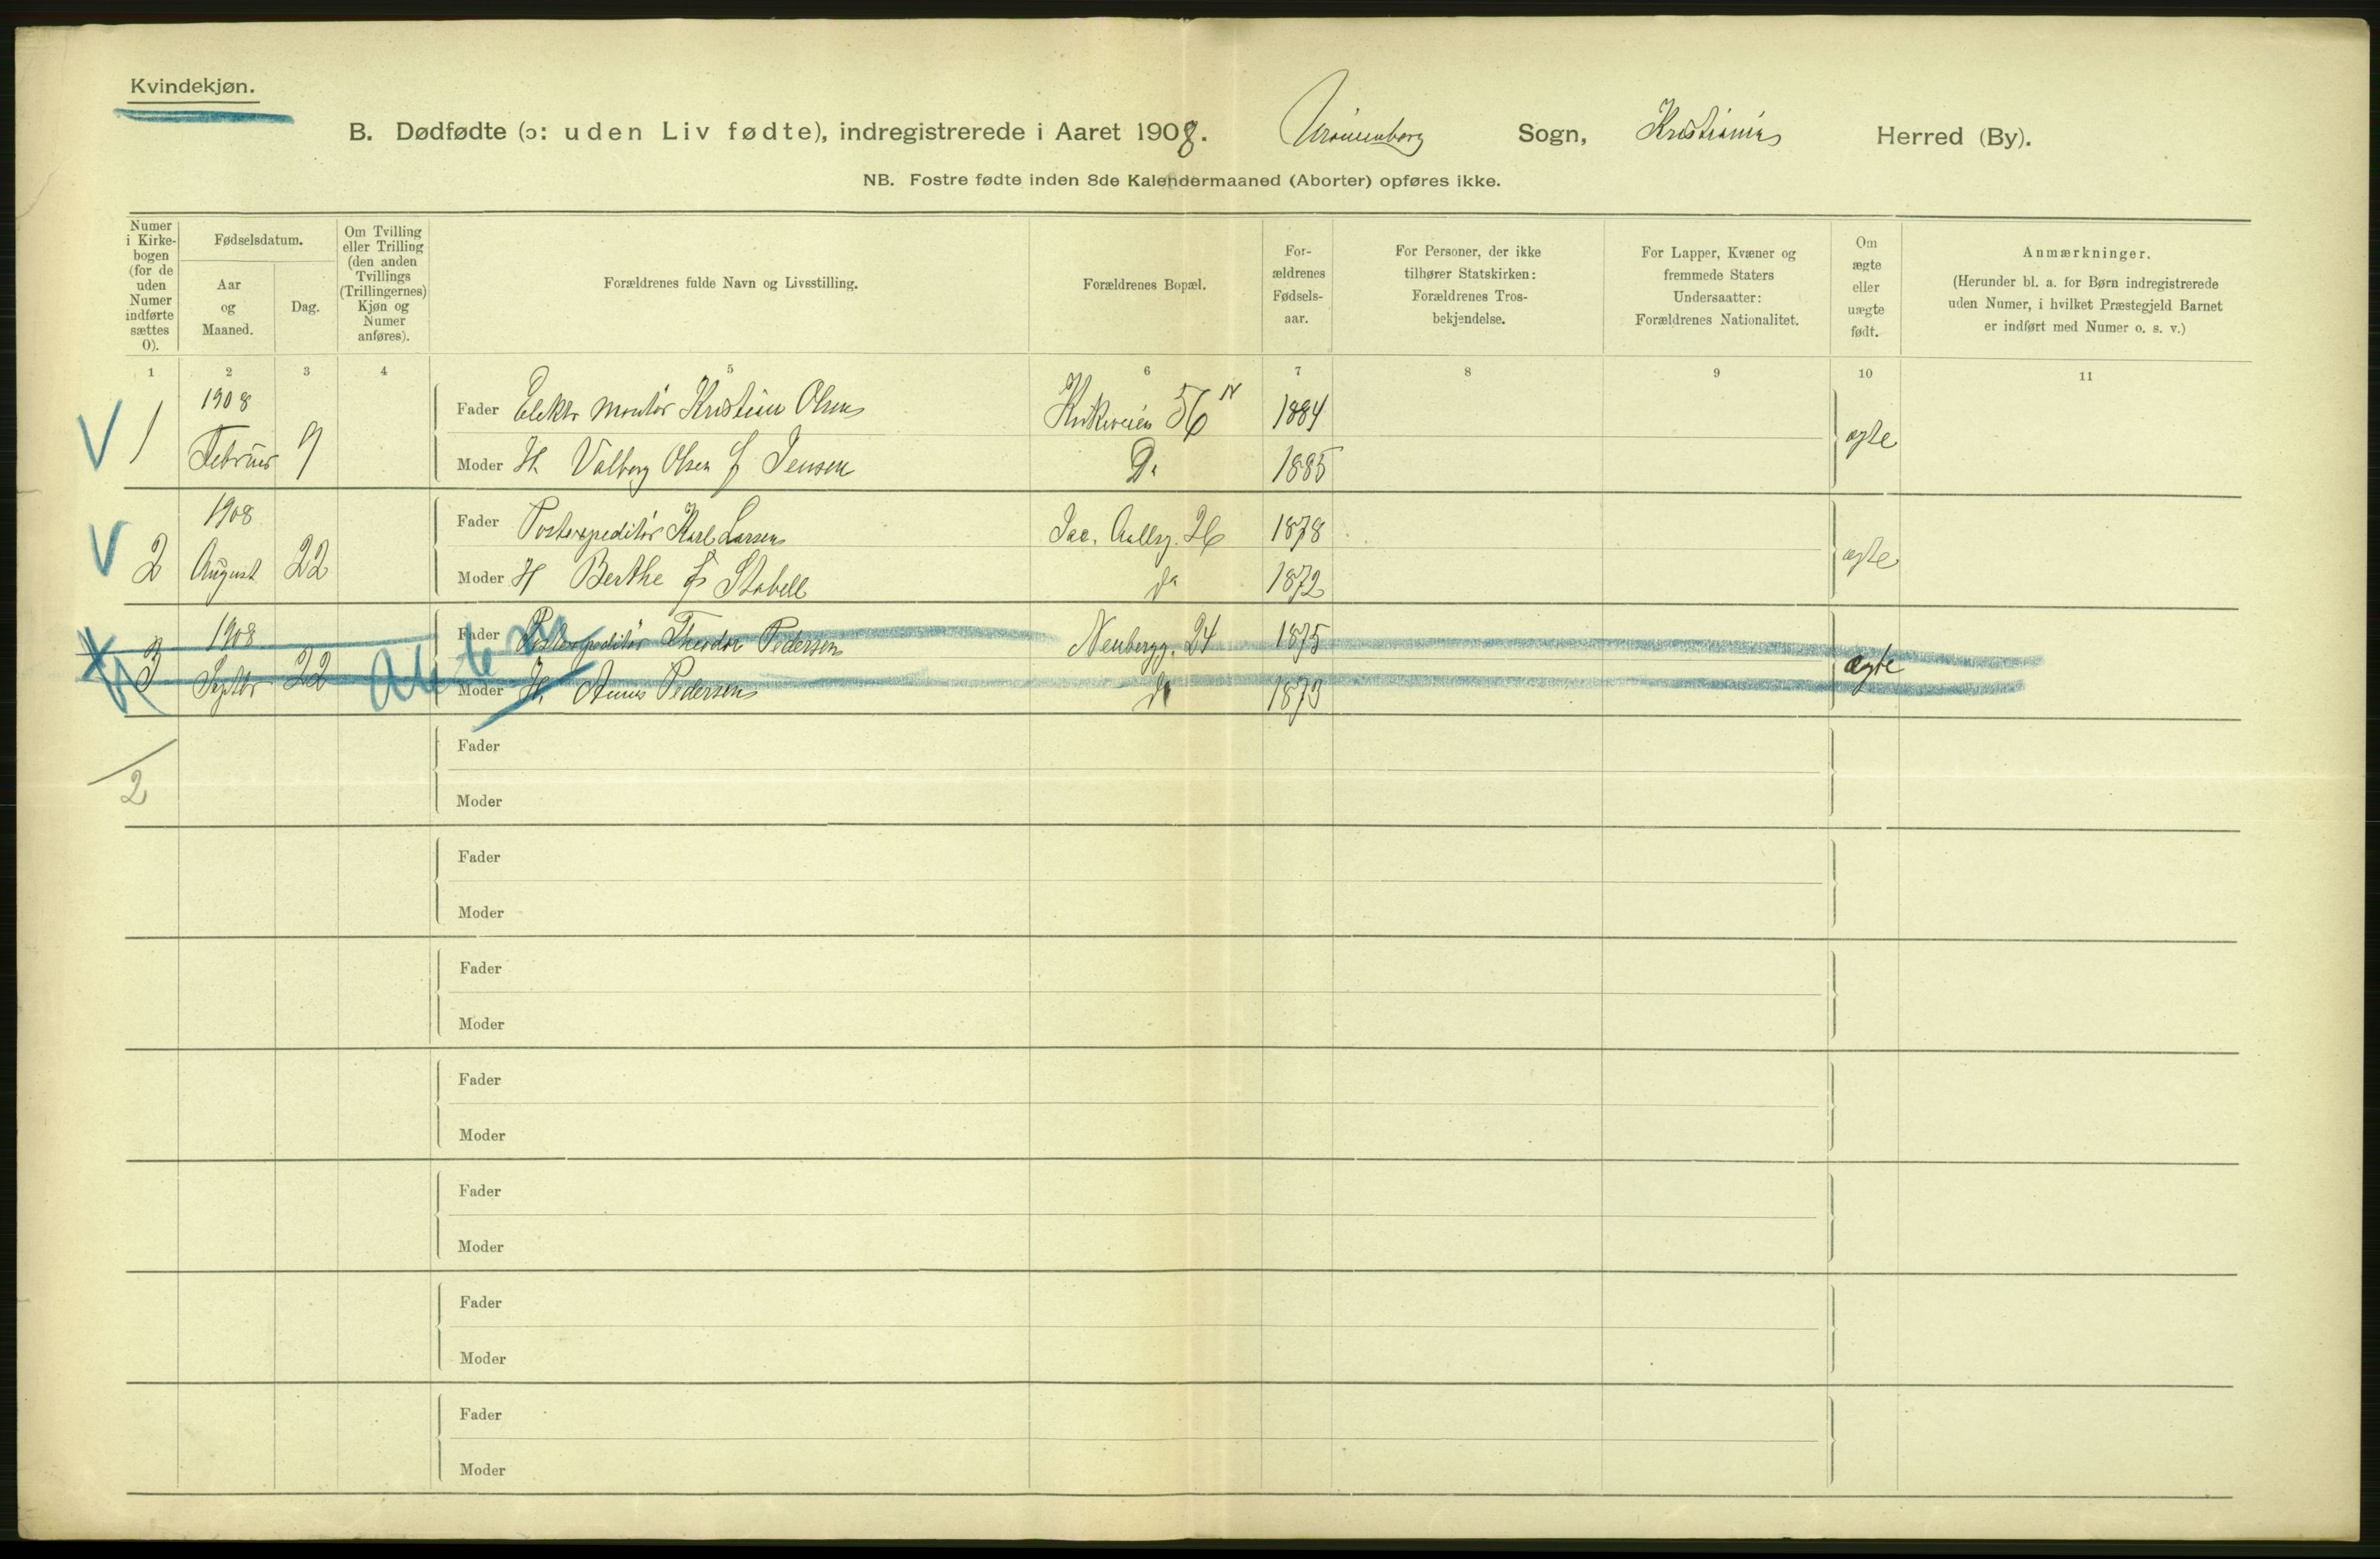 Kvindekjøn.
B. Dødfødte (ɔ: uden Liv fødte), indregistrerede i Aaret 1908. Uranienborg Sogn, Kristiania Herred (By).
NB. Fostre fødte inden 8de Kalendermaaned (Aborter) opføres ikke.
Numer i Kirkebogen (for de uden Numer indførte sættes 0).
Fødselsdatum.
Aar og Maaned.
Dag.
Om Tvilling eller Trilling (den anden Tvillings (Trillingernes) Kjøn og Numer anføres).
Forældrenes fulde Navn og Livsstilling.
Forældrenes Bopæl.
Forældrenes Fødselsaar.
For Personer, der ikke tilhører Statskirken: Forældrenes Trosbekjendelse.
For Lapper, Kvæner og fremmede Staters Undersaatter: Forældrenes Nationalitet.
Om ægte eller uægte født.
Anmærkninger.
(Herunder bl. a. for Børn indregistrerede uden Numer, i hvilket Præstegjeld Barnet er indført med Numer o. s. v.)
1 2 3 4 5 6 7 8 9 10 11
V 1 1908 Februar 9
Fader Elektr montør Kristian Olsen Kirkeveien 56 IV 1884
Moder H. Valborg Olsen f Jensen Do 1885
ægte
V 2 1908 August 22
Fader Postexpeditør Karl Larsen Jac. Aallsg. 26 1878
Moder H Berthe f Stabell do 1872
ægte
3 1908 Septbr 22
Fader Postexpeditør Theodor Pedersen Neubergg. 24 1875
Moder H. Anna Pedersen do 1873
ægte
2
Fader
Moder
Fader
Moder
Fader
Moder
Fader
Moder
Fader
Moder
Fader
Moder
Fader
Moder